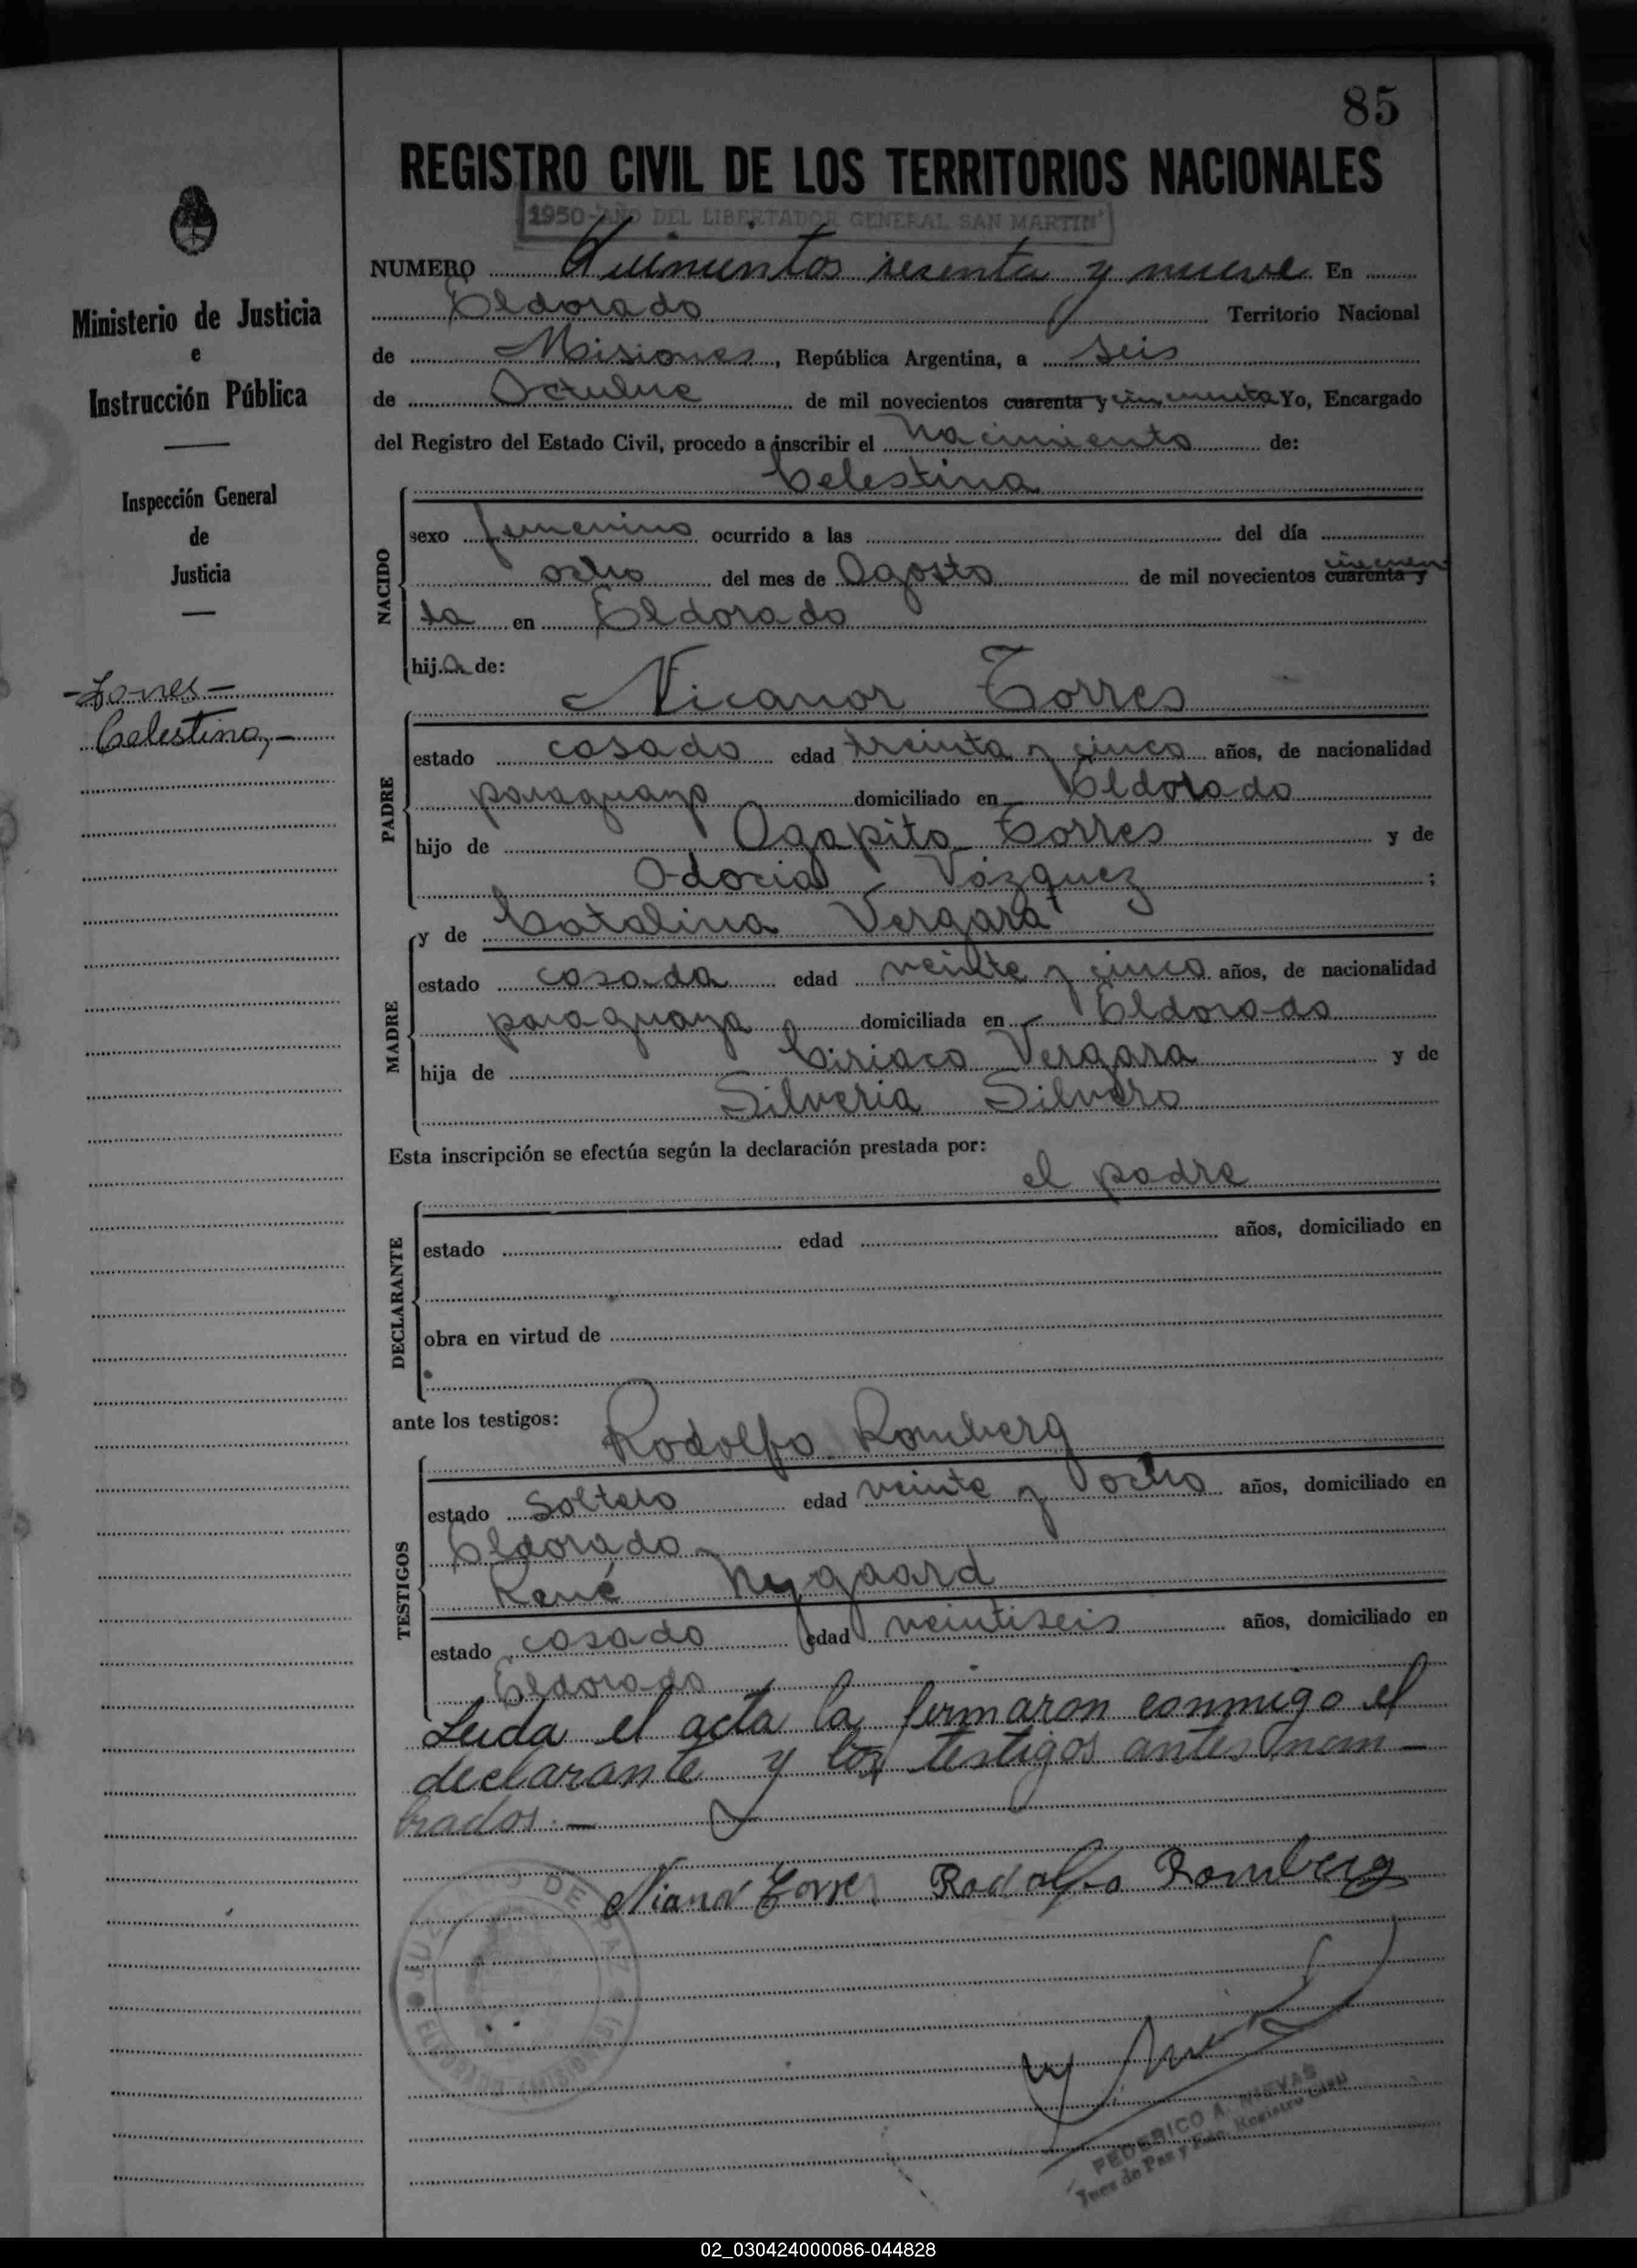 85
REGISTRO CIVIL DE LOS TERRITORIOS NACIONALES
1950-AÑO DEL LIBERTADOR GENERAL SAN MARTIN
NUMERO Quinientos sesenta y nueve En
Eldorado Territorio Nacional
de Misiones, República Argentina, a seis
de Octubre de mil novecientos cuarenta y cincuenta Yo, Encargado
del Registro del Estado Civil, procedo a inscribir el nacimiento de:
Celestina
NACIDO
sexo femenino ocurrido a las del día
ocho del mes de Agosto de mil novecientos cuarenta y cincuen
ta en Eldorado
hija de:
Nicanor Torres
PADRE
estado casado edad treinta y cinco años, de nacionalidad
paraguayo domiciliado en Eldorado
hijo de Agapito Torres y de
Odocia Vázquez ;
y de Catalina Vergara
MADRE
estado casada edad veinte y cinco años, de nacionalidad
paraguaya domiciliada en Eldorado
hija de Ciriaco Vergara y de
Silveria Silvero
Esta inscripción se efectúa según la declaración prestada por:
el padre
DECLARANTE
estado edad años, domiciliado en
obra en virtud de
ante los testigos:
Rodolfo Romberg
TESTIGOS
estado Soltero edad veinte y ocho años, domiciliado en
Eldorado
René Nygaard
estado casado edad veintiseis años, domiciliado en
Eldorado
Leida el acta la firmaron conmigo el
declarante y los testigos antes nom-
brados.-
Nianor Torres Rodolfo Romberg
FEDERICO A. NUEVAS
Juez de Paz y Enc. Registro Civil
JUZGADO DE PAZ
ELDORADO (MISIONES)
Ministerio de Justicia
e
Instrucción Pública
Inspección General
de
Justicia
-Torres-
Celestina,-
02_030424000086-044828